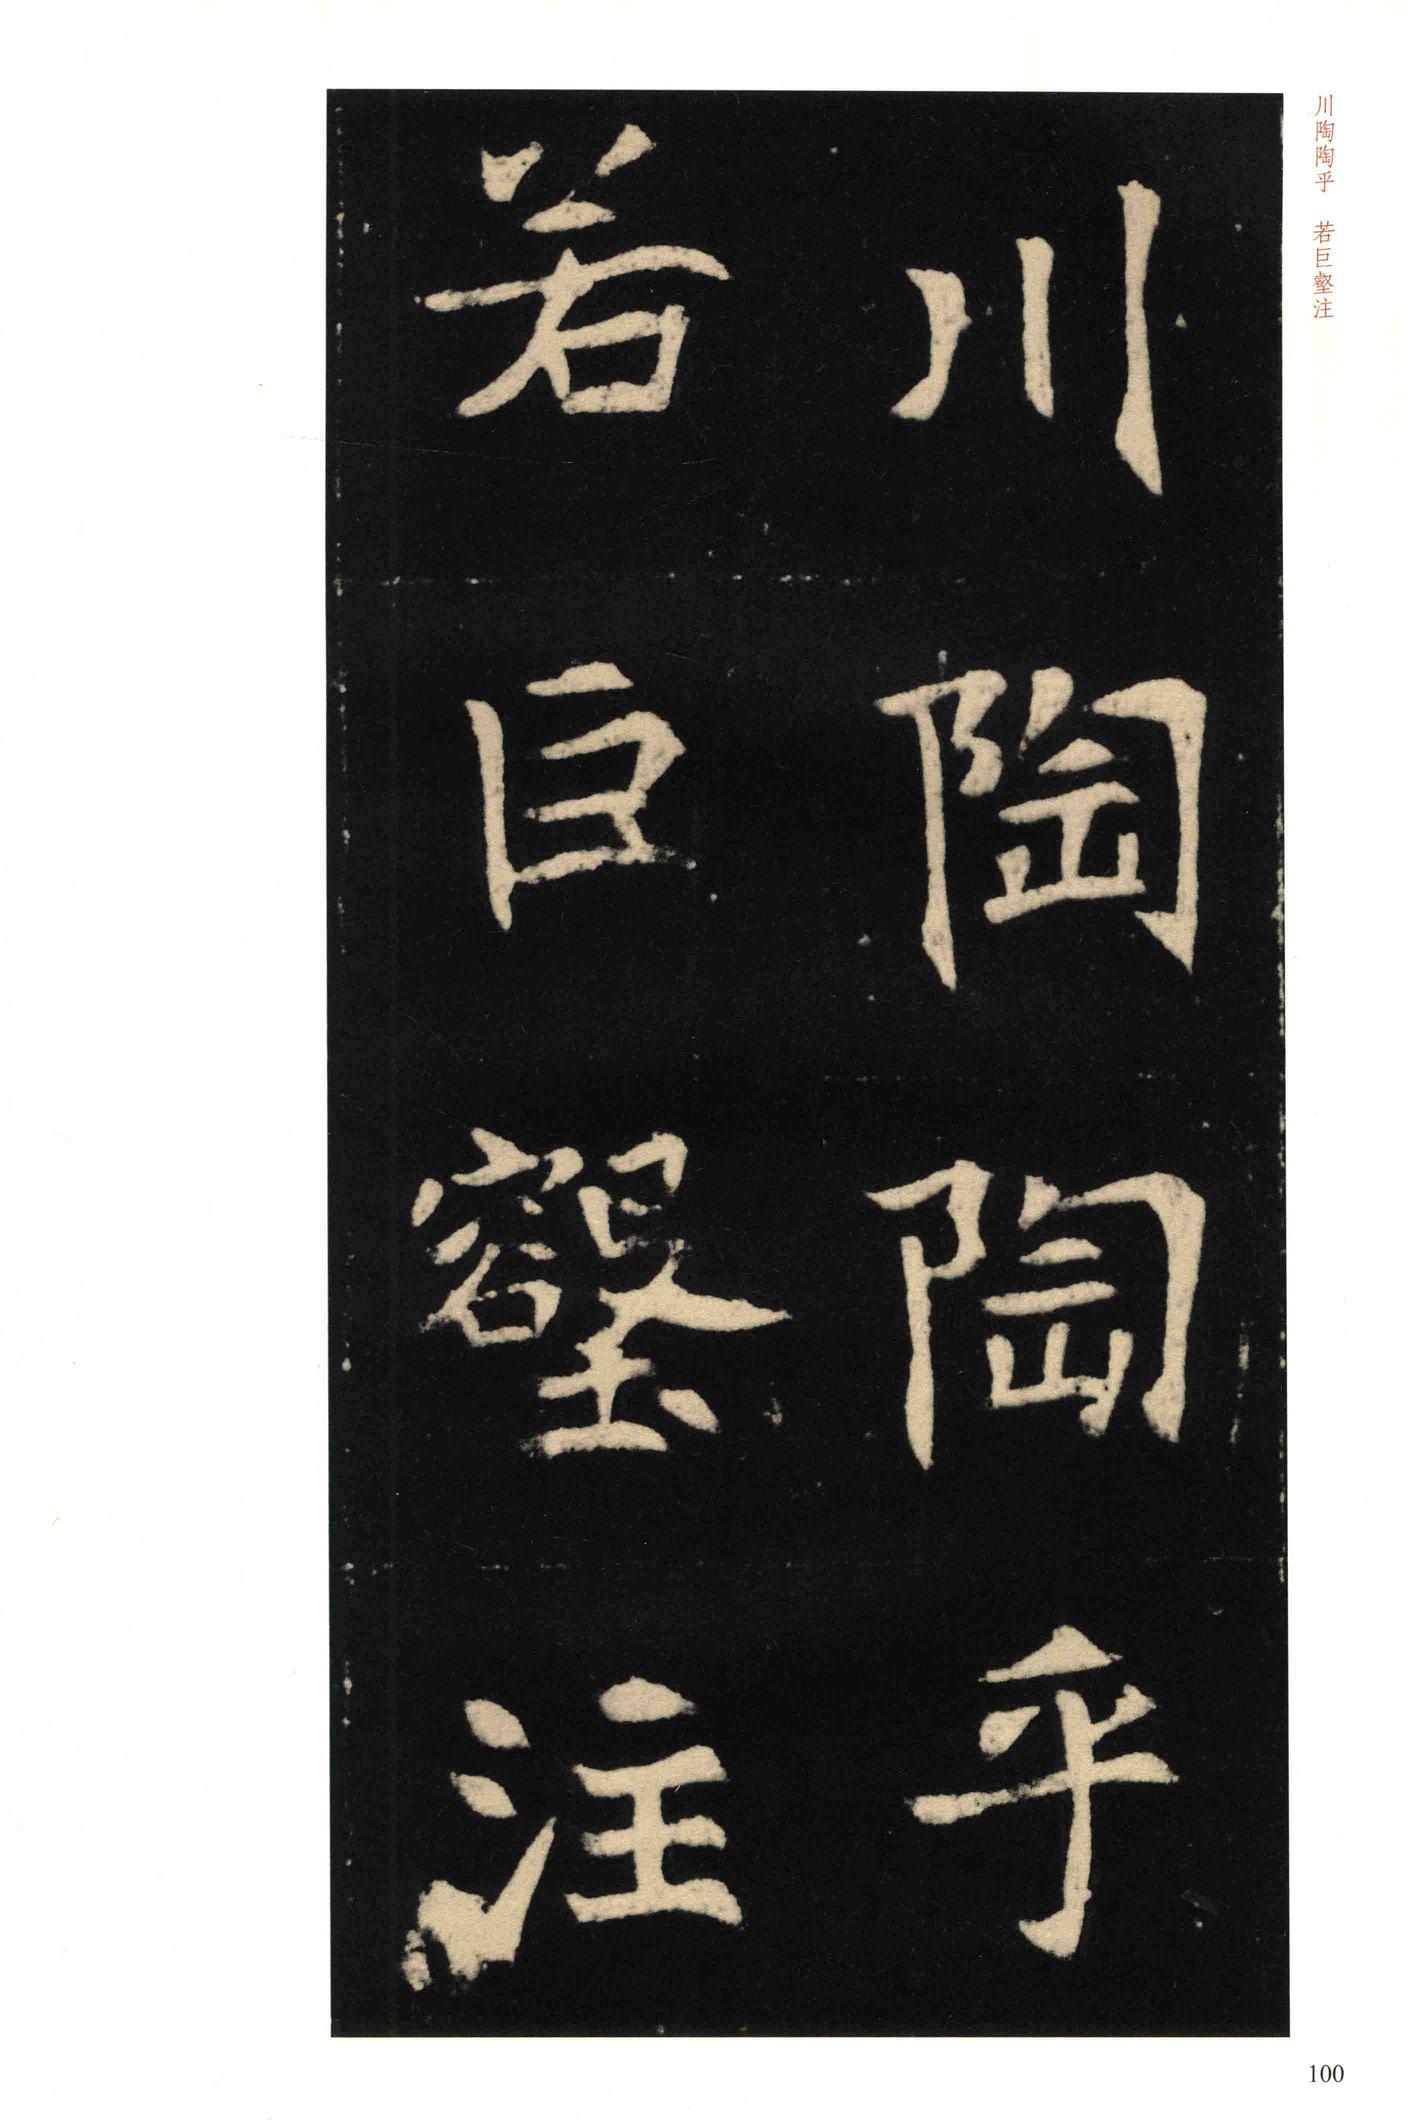 川陶陶乎　若巨壑注
川陶陶乎
若巨壑注
100